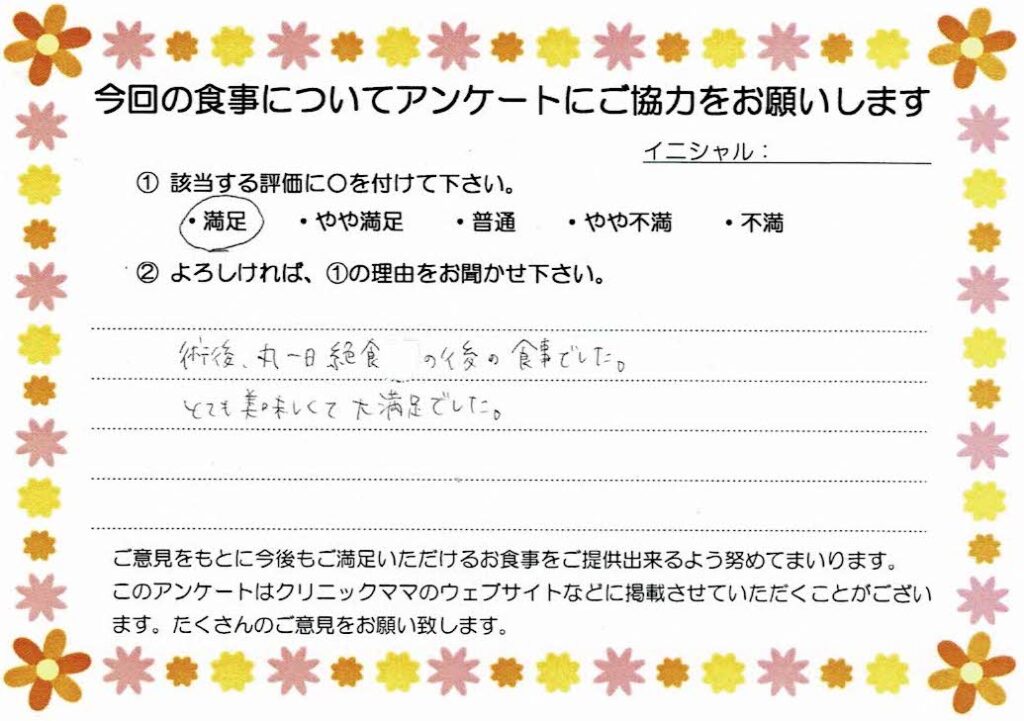 今回の食事についてアンケートにご協力をお願いします
イニシャル：
① 該当する評価に〇を付けて下さい。
・満足 ・やや満足 ・普通 ・やや不満 ・不満
② よろしければ、①の理由をお聞かせ下さい。
術後、丸一日絶食 の後の食事でした。
とても美味しくて大満足でした。
ご意見をもとに今後もご満足いただけるお食事をご提供出来るよう努めてまいります。
このアンケートはクリニックママのウェブサイトなどに掲載させていただくことがござい
ます。たくさんのご意見をお願い致します。